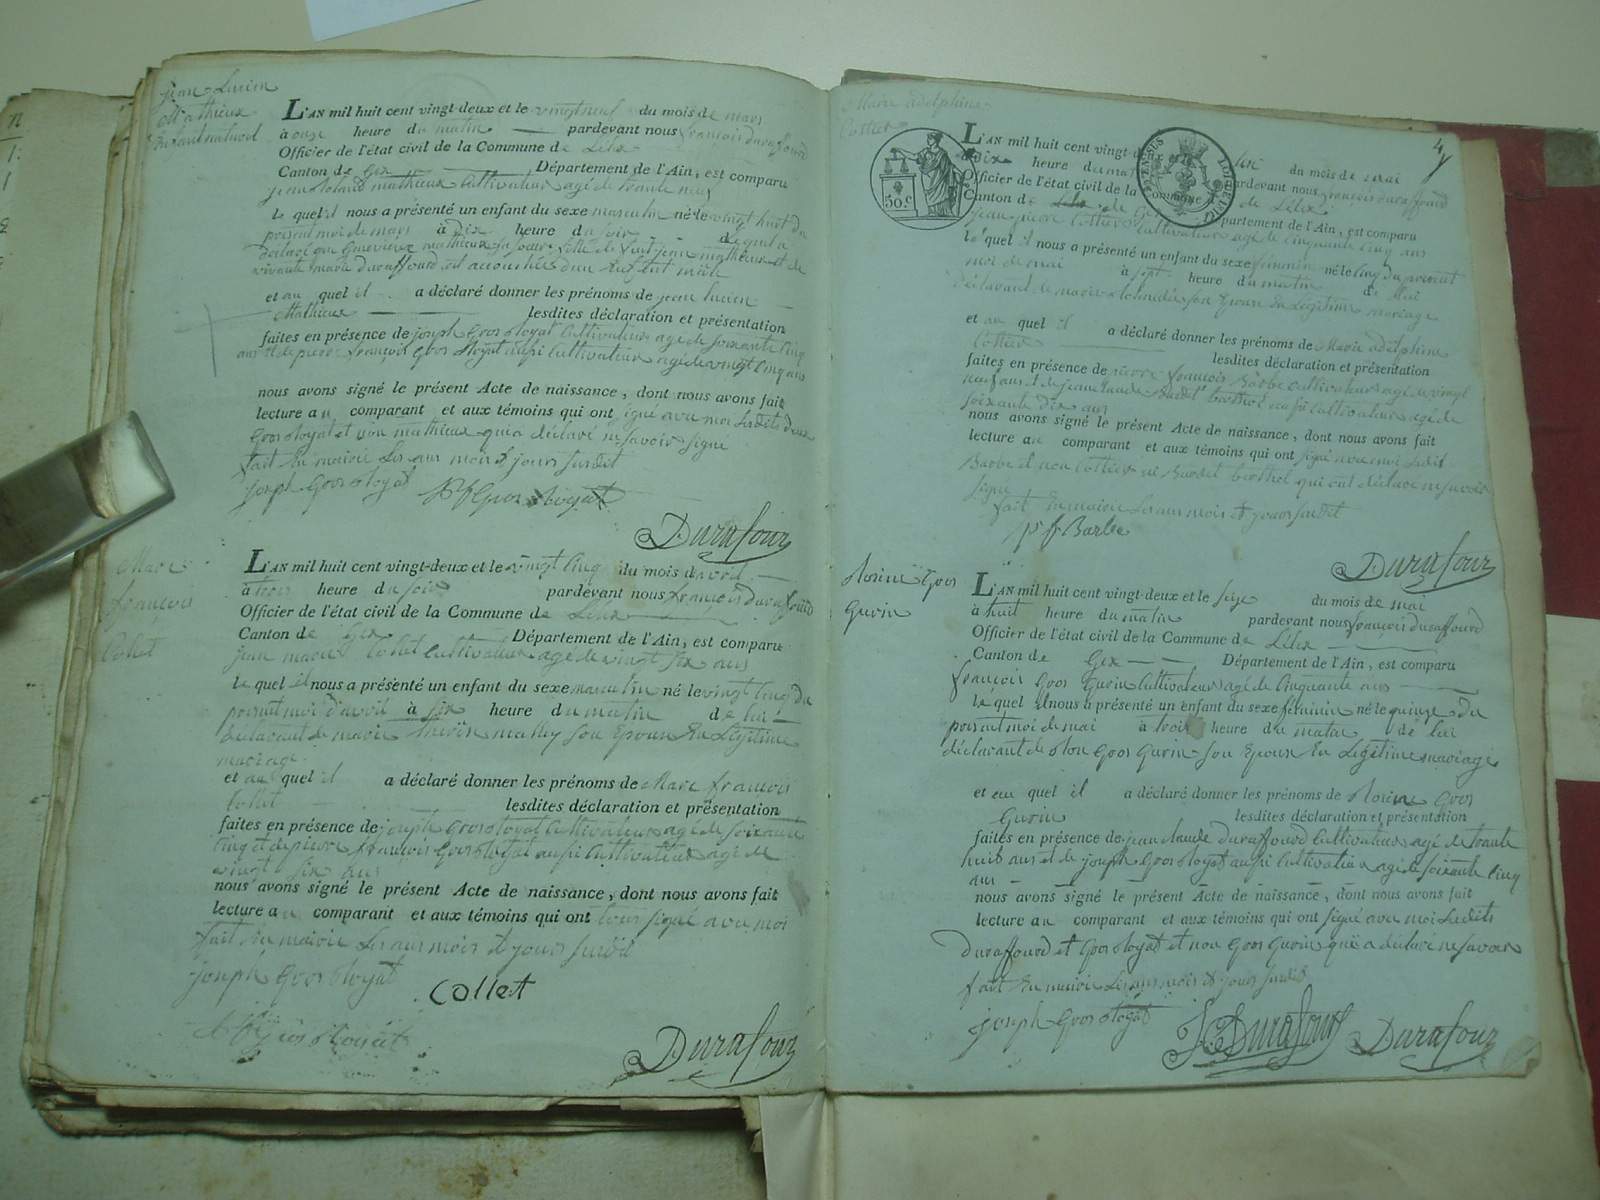 jean Lucien
Mathieux
Enfant naturel
L'AN mil huit cent vingt-deux et le vingt neuf du mois de mars
à onze heure du matin pardevant nous françois duraffourd
Officier de l'état civil de la Commune de Lélex
Canton de Gex Département de l'Ain, est comparu
jean mathieux Cultivateur agé de trente
le quel il nous a présenté un enfant du sexe masculin né le vingt huit du
présent moi de mars à dix heure du soir
déclare que Genevieve mathieux sa soeur fille de jean mathieux et de
vivante marie duraffourd est accouchée d'un Enfant
et au quel il a déclaré donner les prénoms de jean lucien
Mathieux lesdites déclaration et présentation
faites en présence de joseph Gros Royat Cultivateur agé de soixante Cinq
ans et de pierre françois Gros Royat aussi Cultivateur agé de vingt Cinq ans
nous avons signé le présent Acte de naissance, dont nous avons fait
lecture au comparant et aux témoins qui ont signé avec moi Lesdits deux
Gros Royat et non mathieux qui a déclaré ne savoir signe
fait En mairie Les ans mois & jours susdit
joseph Gros Royat
pf Gros Royat
Durafour
Marc
françois
Collet
L'AN mil huit cent vingt-deux et le vingt Cinq du mois d'avril
à trois heure du soir pardevant nous françois duraffourd
Officier de l'état civil de la Commune de Lélex
Canton de Gex Département de l'Ain, est comparu
jean marie Collet Cultivateur agé de vingt six ans
le quel il nous a présenté un enfant du sexe masculin né le vingt Cinq du
présent moi d'avril à six heure du matin de lui
déclarant de marie mathey son Epouse En Légitime
mariage
et au quel il a déclaré donner les prénoms de Marc françois
Collet lesdites déclaration et présentation
faites en présence de joseph Gros Royat Cultivateur agé de soixante
Cinq et de pierre françois Gros Royat aussi Cultivateur agé de
vingt six ans
nous avons signé le présent Acte de naissance, dont nous avons fait
lecture au comparant et aux témoins qui ont tous signé avec moi
fait En mairie Les ans mois et jours susdit
joseph Gros Royat
Collet
Gros Royat
Durafour
Marie adelphine
Cottier
4
50.c
L'AN mil huit cent vingt-deux et le six du mois de mai
à dix heure du matin pardevant nous françois duraffourd
Officier de l'état civil de la Commune de Lélex
Canton de Gex Département de l'Ain, est comparu
jean pierre Cottier Cultivateur agé de Cinquante Cinq ans
le quel il nous a présenté un enfant du sexe féminin né le Cinq du présent
moi de mai à sept heure du matin de lui
déclarant de marie son Epouse En Légitime mariage
et au quel il a déclaré donner les prénoms de Marie adelphine
Cottier lesdites déclaration et présentation
faites en présence de pierre françois Barbe Cultivateur agé de vingt
neuf ans et de jean Claude berthet aussi Cultivateur agé de
soixante dix ans
nous avons signé le présent Acte de naissance, dont nous avons fait
lecture au comparant et aux témoins qui ont signé avec moi Ledit
Barbe et non Cottier ni berthet qui ont déclaré ne savoir
signe
fait En mairie Les ans mois et jours susdit
p f Barbe
Durafour
Gros
Gurin
L'AN mil huit cent vingt-deux et le seize du mois de mai
à huit heure du matin pardevant nous françois duraffourd
Officier de l'état civil de la Commune de Lélex
Canton de Gex Département de l'Ain, est comparu
françois Gros Gurin Cultivateur agé de Cinquante ans
le quel il nous a présenté un enfant du sexe féminin né le quinze du
présent moi de mai à trois heure du matin de lui
déclarant de Gros Gurin son Epouse En Légitime mariage
et au quel il a déclaré donner les prénoms de Gros
Gurin lesdites déclaration et présentation
faites en présence de jean claude duraffourd Cultivateur agé de trente
huit ans et de joseph Gros Royat aussi Cultivateur agé de soixante Cinq
ans
nous avons signé le présent Acte de naissance, dont nous avons fait
lecture au comparant et aux témoins qui ont signé avec moi Ledits
duraffourd et Gros Royat et non Gros Gurin qui a déclaré ne savoir
fait En mairie Les ans mois & jours susdit
joseph Gros Royat
J. C. Durafour
Durafour